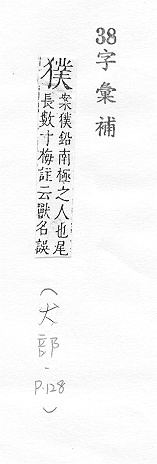 38字彙補
獛
案獛鉛南極之人也尾
長數寸梅註云獸名誤
(犬部-P.128)